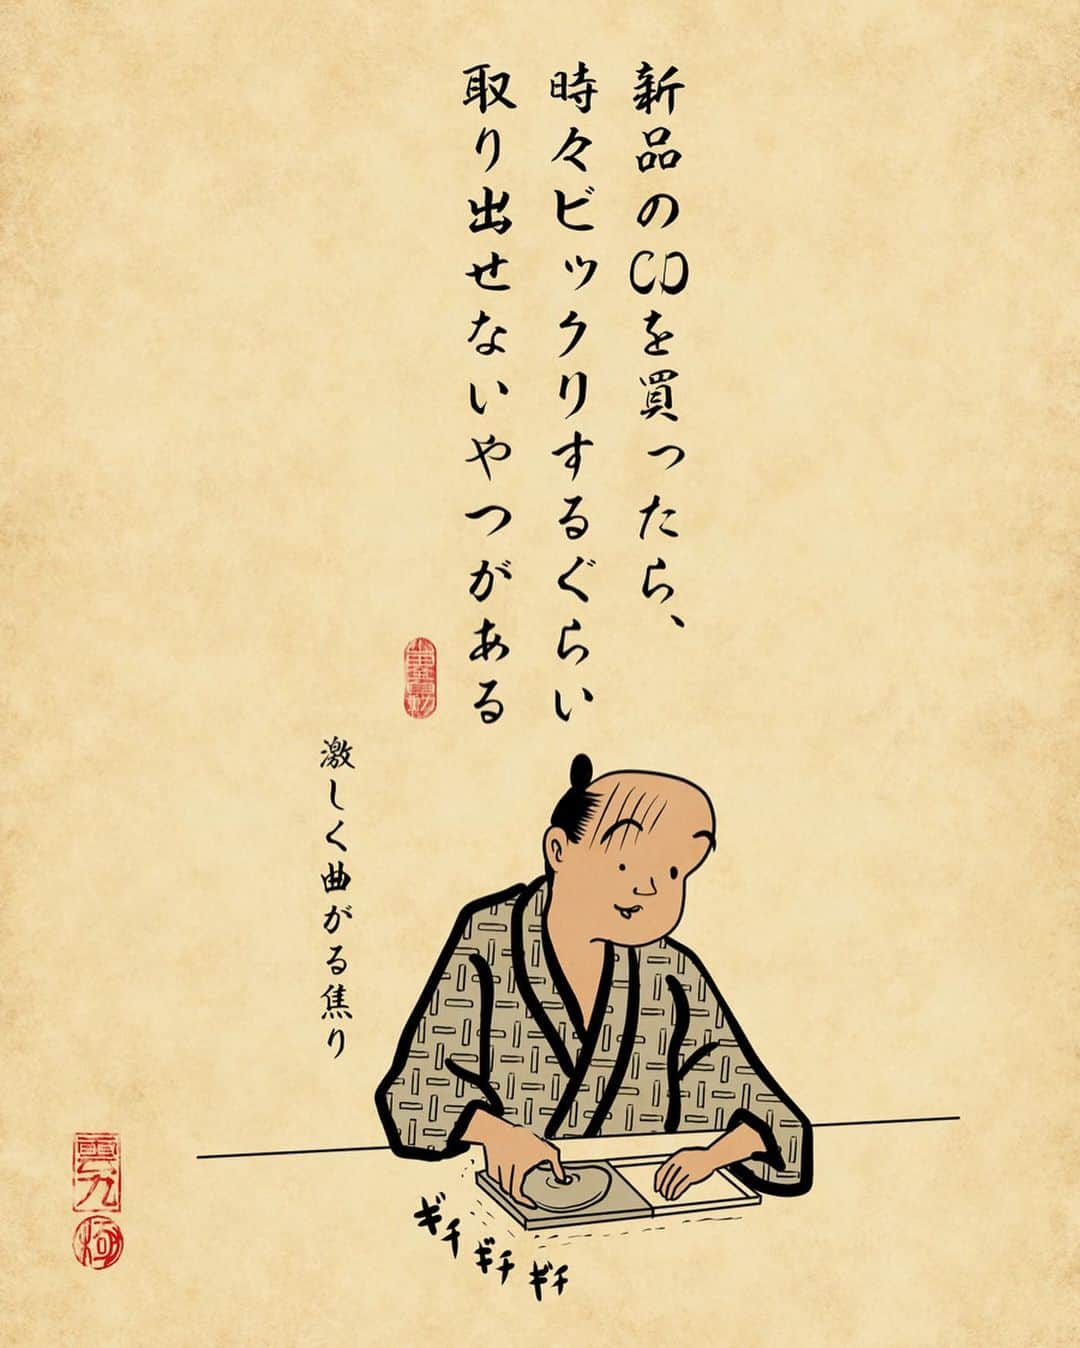 新品のCDを買ったら、
時々ビックリするぐらい
取り出せないやつがある
激しく曲がる焦り
ギチ
ギチ
ギチ